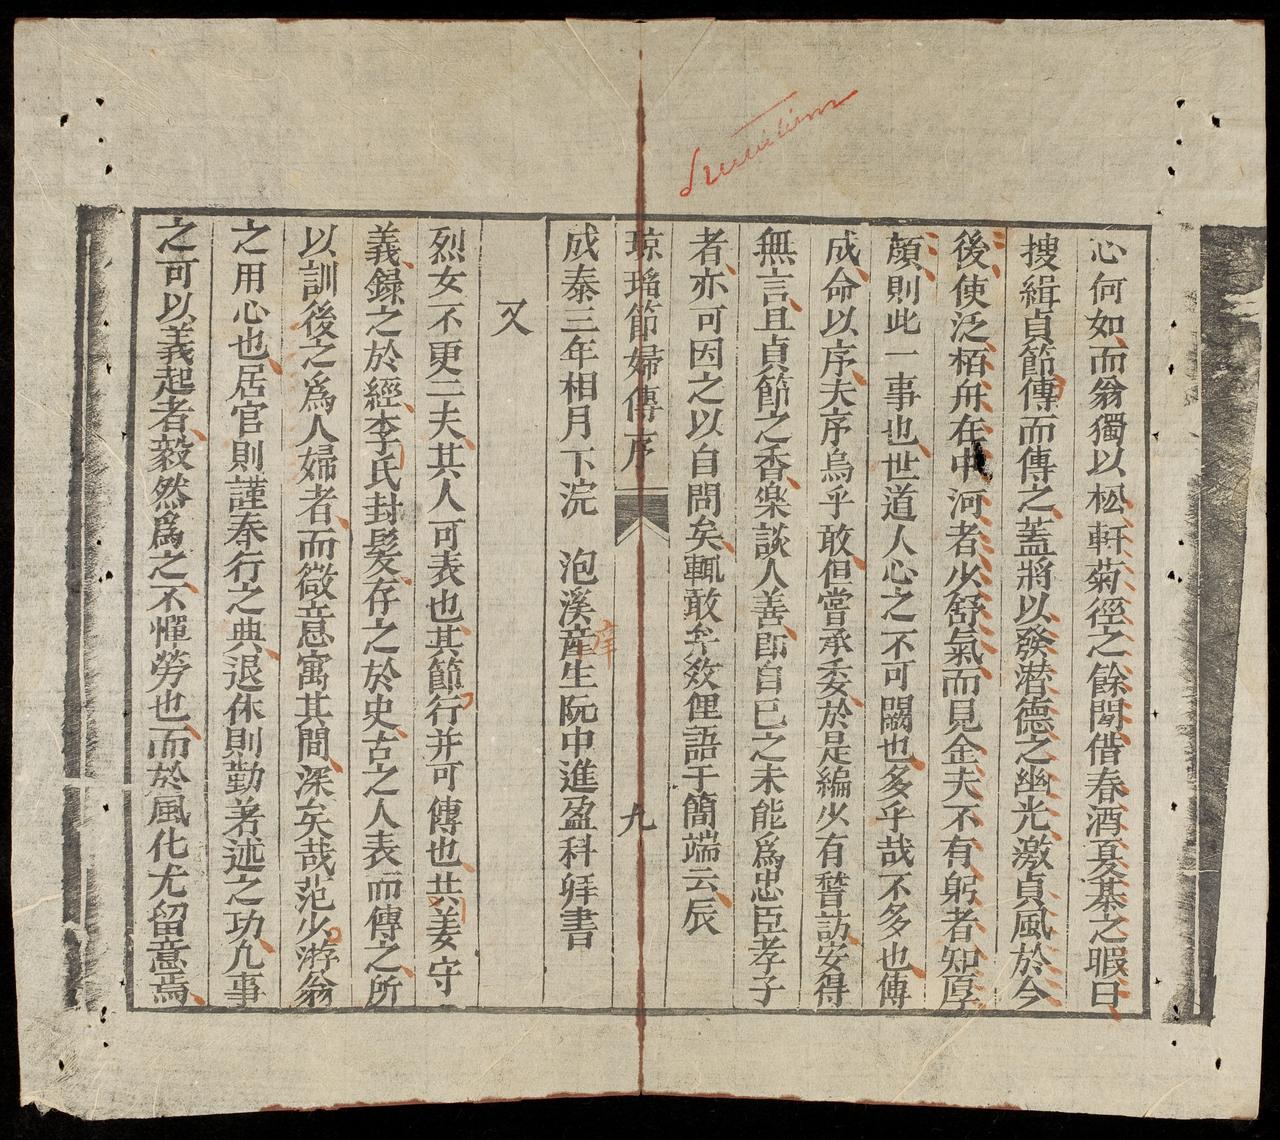 心何如而翁獨以松軒菊徑之餘閒借春酒夏棊之暇日
搜緝貞節傳而傳之蓋將以發潛德之幽光激貞風於今
後使泛栢舟在中河者少舒氣而見金夫不有躬者知厚
顔則此一事也世道人心之不可闕也多乎哉不多也傳
成命以序夫序烏乎敢但嘗承委於是編少有諮訪安得
無言且貞節之香樂談人善即自已之未能爲忠臣孝子
者亦可因之以自問矣輒敢弁效俚語于簡端云辰
琼瑤節婦傳序
九
成泰三年相月下浣 泡溪産生阮中進盈科拜書
又
烈女不更二夫其人可表也其節行并可傳也共姜守
義錄之於經李氏封髮存之於史古之人表而傳之所
以訓後之爲人婦者而微意寓其間深矣哉范少游翁
之用心也居官則謹奉行之典退休則勤著述之功九事
之可以義起者毅然爲之不憚勞也而於風化尤留意焉